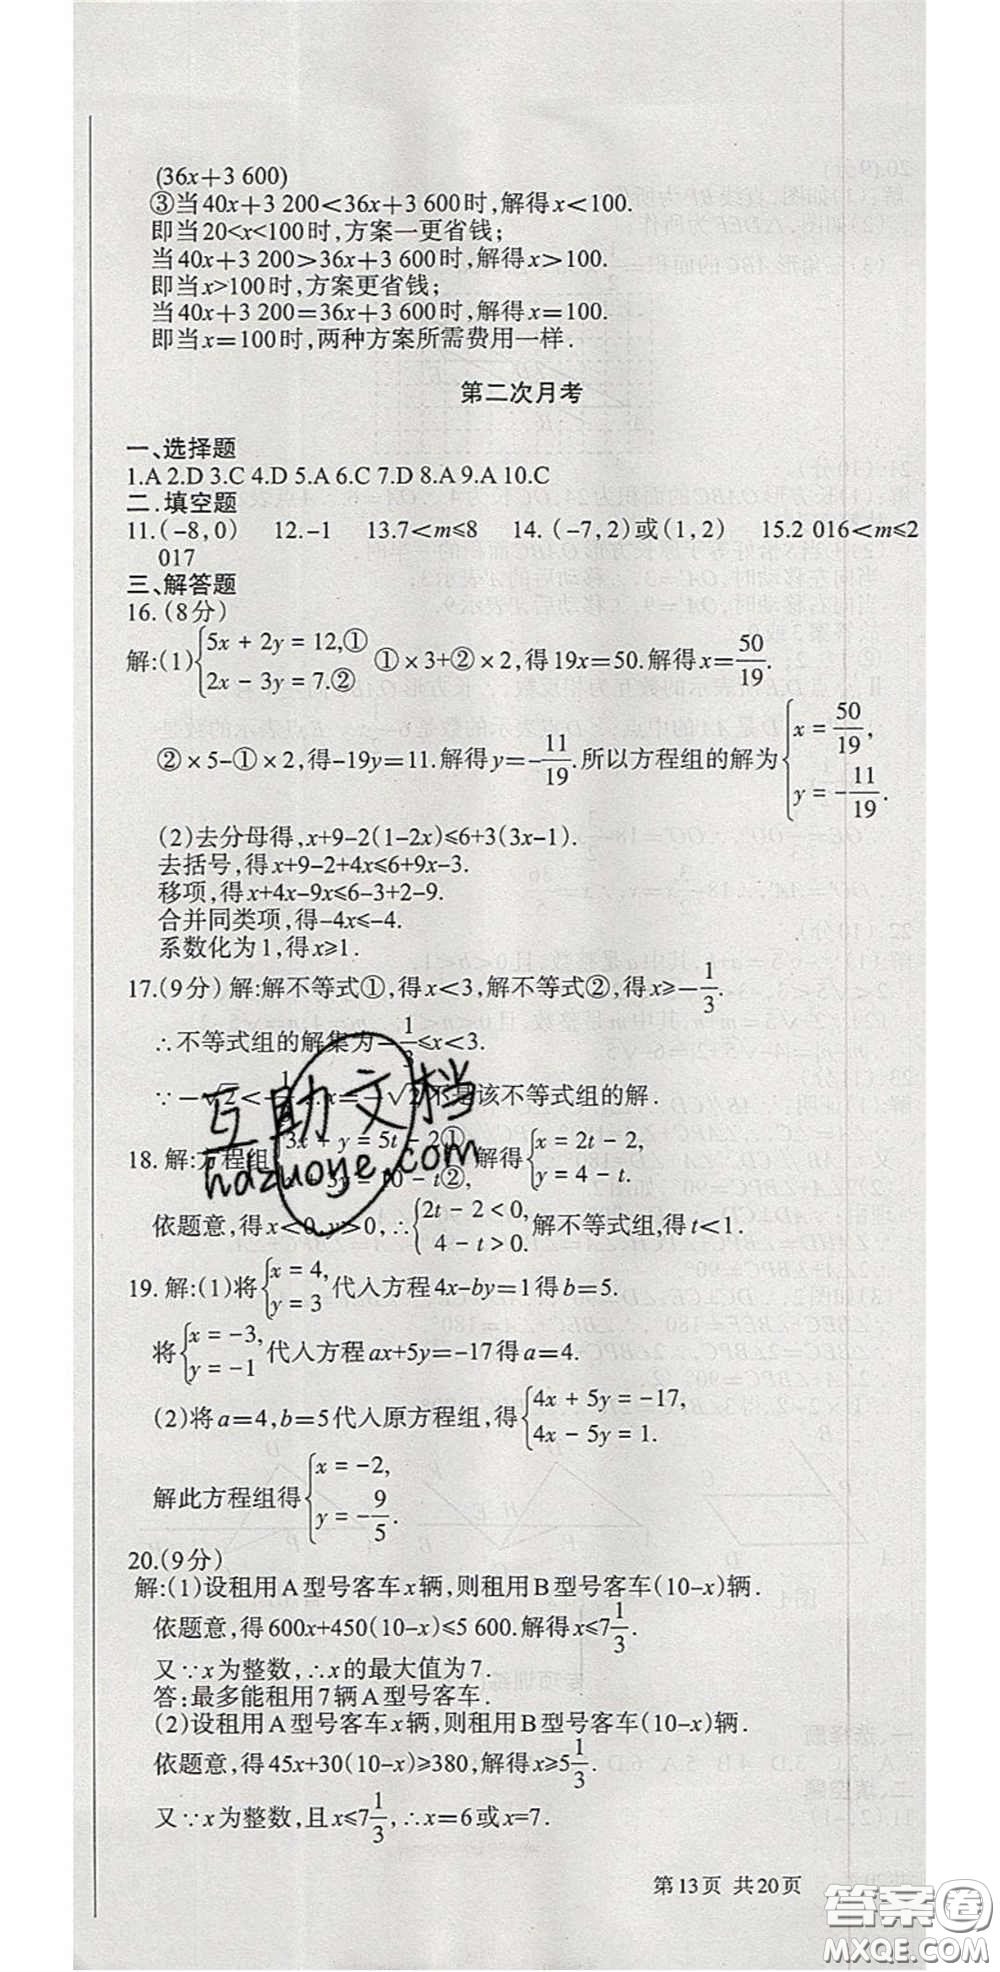 (36x+3 600)
③当40x+3 200<36x+3 600时,解得x<100.
即当20<x<100时,方案一更省钱;
当40x+3 200>36x+3 600时,解得x>100.
即当x>100时,方案更省钱;
当40x+3 200=36x+3 600时,解得x=100.
即当x=100时,两种方案所需费用一样.
第二次月考
一、选择题
1.A 2.D 3.C 4.D 5.A 6.C 7.D 8.A 9.A 10.C
二.填空题
11.(-8,0) 12.-1 13.7<m≤8 14.(-7,2)或(1,2) 15.2 016<m≤2
017
三、解答题
16.(8分)
解:(1){5x+2y=12,① 2x-3y=7.② ①×3+②×2,得19x=50.解得x=50/19.
②×5-①×2,得-19y=11.解得y=-11/19.所以方程组的解为{x=50/19, y=-11/19.
(2)去分母得,x+9-2(1-2x)≤6+3(3x-1).
去括号,得x+9-2+4x≤6+9x-3.
移项,得x+4x-9x≤6-3+2-9.
合并同类项,得-4x≤-4.
系数化为1,得x≥1.
17.(9分)解:解不等式①,得x<3,解不等式②,得x≥-1/3.
∴不等式组的解集为-1/3≤x<3.
∵-√2<- x=-√2不是该不等式组的解.
18.解:方程组 3x+y=5t-2① 10-t②,解得{x=2t-2, y=4-t.
依题意,得x<0,y>0,∴{2t-2<0, 4-t>0.解不等式组,得t<1.
19.解:(1)将{x=4, y=3代入方程4x-by=1得b=5.
将{x=-3, y=-1代入方程ax+5y=-17得a=4.
(2)将a=4,b=5代入原方程组,得{4x+5y=-17, 4x-5y=1.
解此方程组得{x=-2, y=-9/5.
20.(9分)
解:(1)设租用A型号客车x辆,则租用B型号客车(10-x)辆.
依题意,得600x+450(10-x)≤5 600.解得x≤7 1/3.
又∵x为整数,∴x的最大值为7.
答:最多能租用7辆A型号客车.
(2)设租用A型号客车x辆,则租用B型号客车(10-x)辆.
依题意,得45x+30(10-x)≥380,解得x≥5 1/3.
又∵x为整数,且x≤7 1/3,∴x=6或x=7.
第13页 共20页
互助文档
hdzuoye.com
答案圈
MXQE.COM